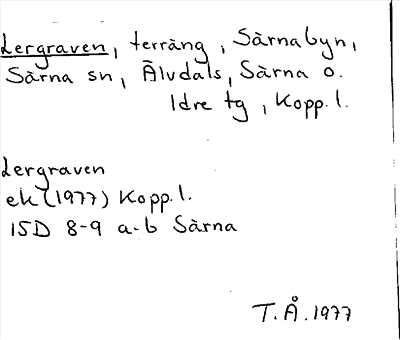 Lergraven, terräng, Särnabyn,
Särna sn, Älvdals, Särna o.
Idre tg, Kopp. l.
Lergraven
ek (1977) Kopp. l.
15D 8-9 a-b Särna
T.Å. 1977